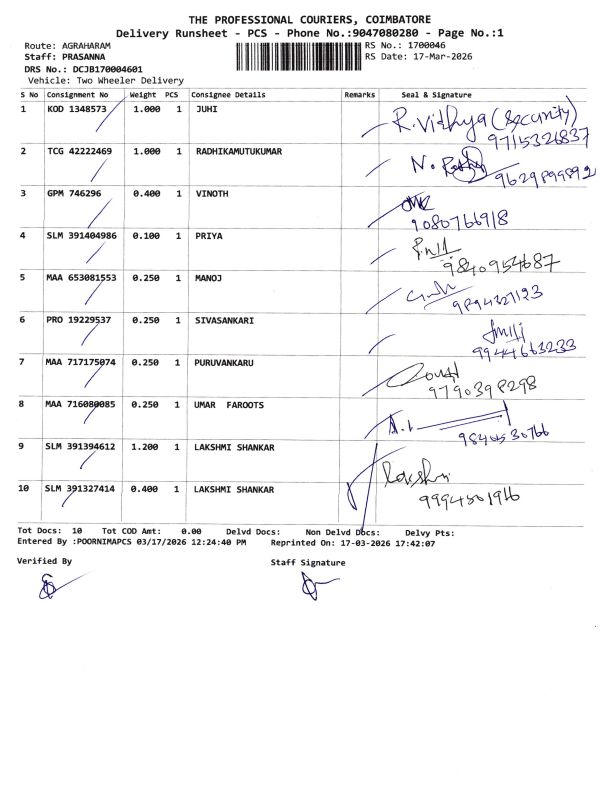 THE PROFESSIONAL COURIERS, COIMBATORE
Delivery Runsheet - PCS - Phone No.:9047080280 - Page No.:1
Route: AGRAHARAM
RS No.: 1700046
Staff: PRASANNA
RS Date: 17-Mar-2026
DRS No.: DCJB170004601
Vehicle: Two Wheeler Delivery
S No Consignment No Weight PCS Consignee Details Remarks Seal & Signature
1 KOD 1348573 1.000 1 JUHI R. Vithya (Security)
9715326837
2 TCG 42222469 1.000 1 RADHIKAMUTUKUMAR N.
9629899892
3 GPM 746296 0.400 1 VINOTH
9080766918
4 SLM 391404986 0.100 1 PRIYA
9840954687
5 MAA 653081553 0.250 1 MANOJ
9894327123
6 PRO 19229537 0.250 1 SIVASANKARI
9944663233
7 MAA 717175074 0.250 1 PURUVANKARU
9790398298
8 MAA 716080085 0.250 1 UMAR FAROOTS
9840530766
9 SLM 391394612 1.200 1 LAKSHMI SHANKAR Lakshmi
10 SLM 391327414 0.400 1 LAKSHMI SHANKAR 9994501916
Tot Docs: 10 Tot COD Amt: 0.00 Delvd Docs: Non Delvd Docs: Delvy Pts:
Entered By :POORNIMAPCS 03/17/2026 12:24:40 PM Reprinted On: 17-03-2026 17:42:07
Verified By Staff Signature